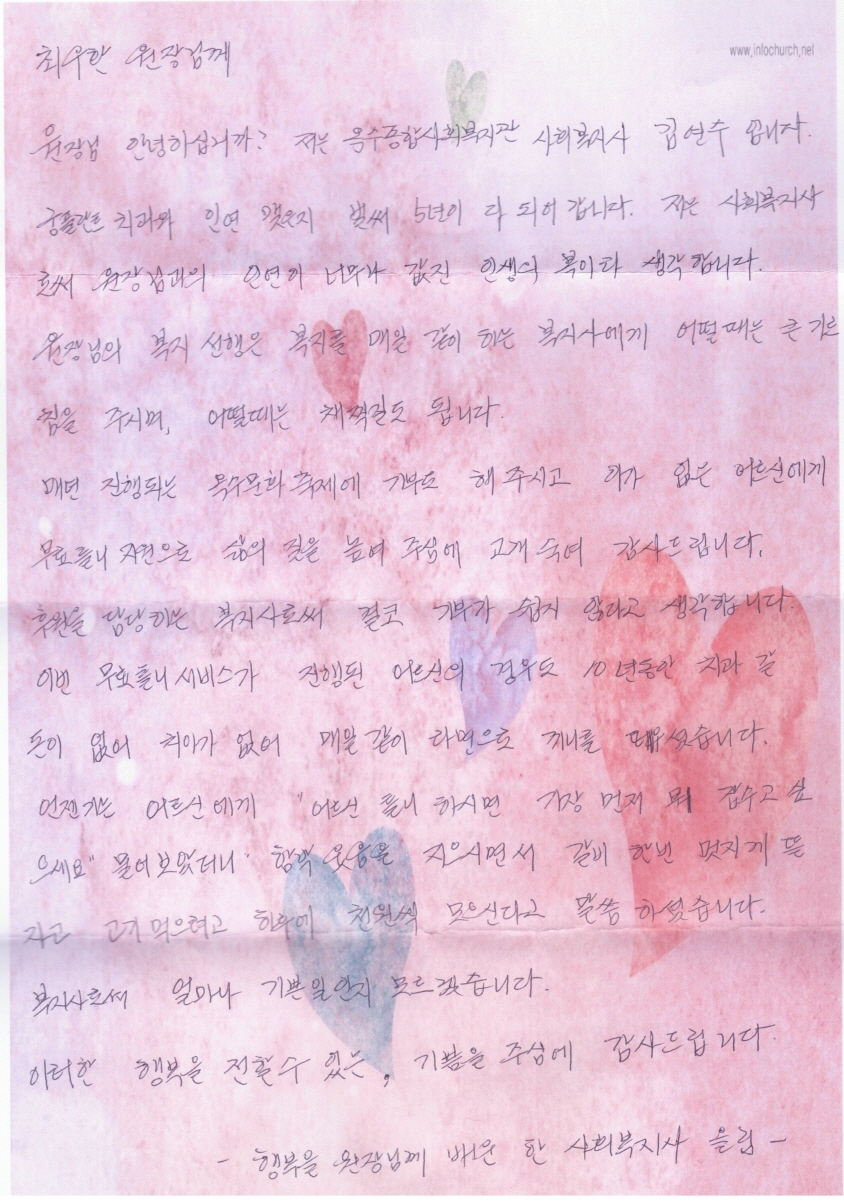 www.infochurch.net
최우한 원장님께
원장님 안녕하십니까? 저는 옥수종합사회복지관 사회복지사 김연수 입니다.
굿플란트 치과와 인연 맺은지 벌써 5년이 다 되어 갑니다. 저는 사회복지사
로써 원장님과의 인연이 너무나 값진 인생의 복이다 생각합니다.
원장님의 복지 선행은 복지를 매일 같이 하는 복지사에게 어떨때는 큰 가르
침을 주시며, 어떨때는 채찍질도 됩니다.
매년 진행되는 옥수문화축제에 기부도 해 주시고 치아가 없는 어르신에게
무료틀니 지원으로 삶의 질을 높여 주심에 고개숙여 감사드립니다.
후원을 담당하는 복지사로써 결코 기부가 쉽지 않다고 생각합니다.
이번 무료틀니서비스가 진행된 어르신의 경우도 10년동안 치과 갈
돈이 없어 치아가 없어 매일같이 라면으로 끼니를 때우셨습니다.
언젠가는 어르신에게 "어르신 틀니 하시면 가장 먼저 뭐 잡수고 싶
으세요" 물어보았더니 함박 웃음을 지으시면서 갈비 한번 멋지게 뜯
자고 고기먹으려고 하루에 천원씩 모으신다고 말씀 하셨습니다.
복지사로써 얼마나 기쁜일인지 모르겠습니다.
이러한 행복을 전할수 있는, 기쁨을 주심에 감사드립니다.
- 행복을 원장님께 배운 한 사회복지사 올림 -